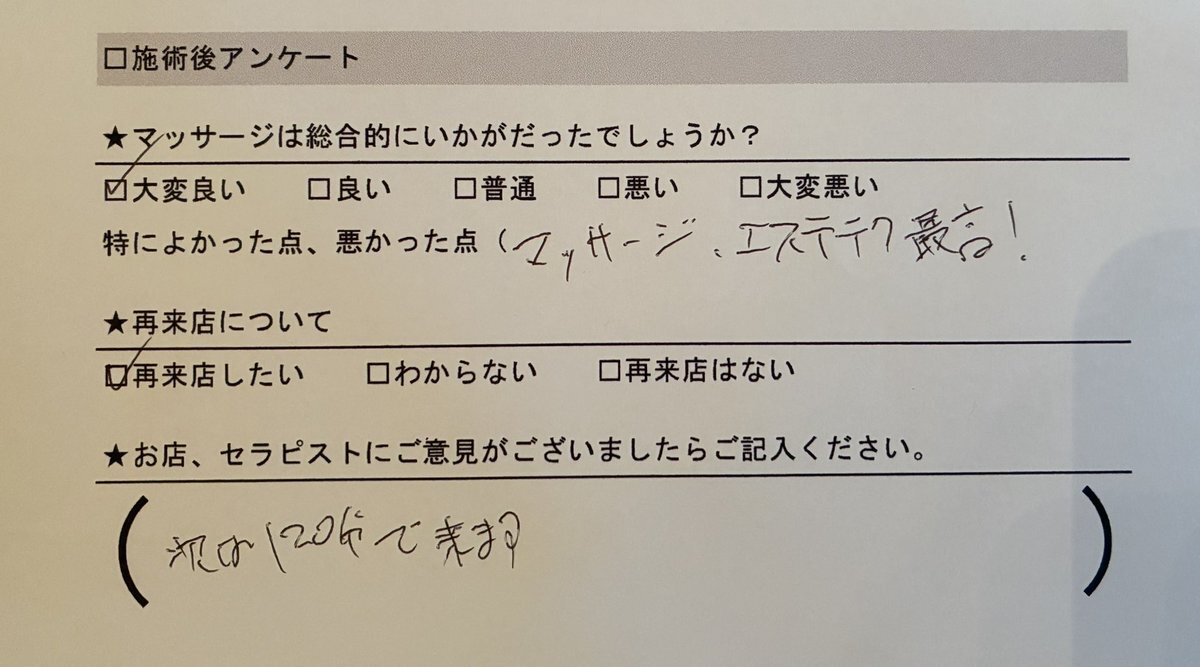 □施術後アンケート
★マッサージは総合的にいかがだったでしょうか？
☑大変良い □良い □普通 □悪い □大変悪い
特によかった点、悪かった点（マッサージ、エステテク最高！
★再来店について
☑再来店したい □わからない □再来店はない
★お店、セラピストにご意見がございましたらご記入ください。
（次は120分で来ます）